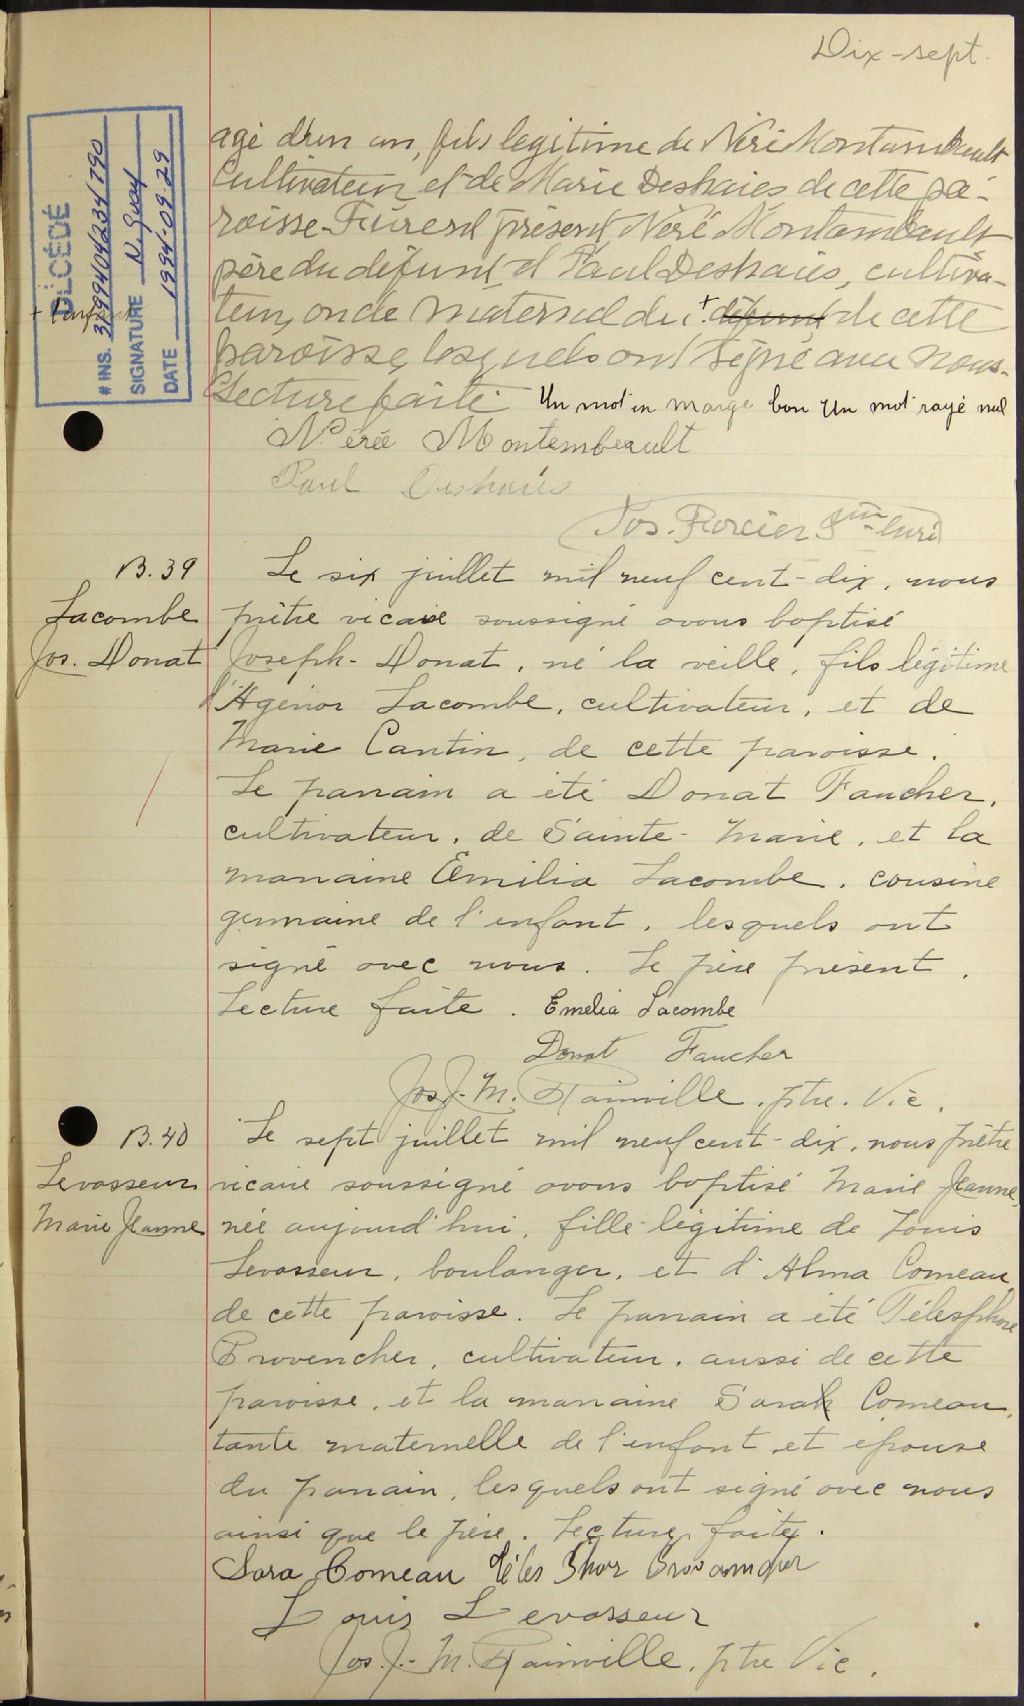 Dix-sept.
agé d'un an, fils legitime de Néré Montambault
cultivateur et de Marie Deshaies de cette pa-
roisse. Furent présent Néré Montambault
père du défunt et Paul Deshaies, cultiva-
teur, oncle maternel de l'+ défunt de cette
paroisse, lesquels ont signé avec nous.
Lecture faite. Un mot en marge bon Un mot rayé nul
+ l'enfant
DÉCÉDÉ
# INS. 3199404234790
SIGNATURE N. Guay
DATE 1994-09-29
Nérée Montembeault
Paul Deshaies
Jos. Forcier Ptre Curé
B. 39
Lacombe
Jos. Donat
Le six juillet mil neuf cent-dix, nous
prêtre vicaire soussigné avons baptisé
Joseph-Donat, né la veille, fils légitime
d'Agénor Lacombe, cultivateur, et de
Marie Cantin, de cette paroisse.
Le parrain a été Donat Faucher,
cultivateur, de Sainte-Marie, et la
marraine Emilia Lacombe, cousine
germaine de l'enfant, lesquels ont
signé avec nous. Le père présent.
Lecture faite. Emelia Lacombe
Donat Faucher
Jos. J. M. Rainville, ptre. Vic.
B. 40
Levasseur
Marie Jeanne
Le sept juillet mil neuf cent-dix, nous prêtre
vicaire soussigné avons baptisé Marie Jeanne,
née aujourd'hui, fille légitime de Louis
Levasseur, boulanger, et d'Alma Comeau,
de cette paroisse. Le parrain a été Télesphore
Provencher, cultivateur, aussi de cette
paroisse, et la marraine Sarah Comeau,
tante maternelle de l'enfant et épouse
du parrain, lesquels ont signé avec nous
ainsi que le père. Lecture faite.
Sara Comeau
Louis Levasseur
Jos. J. M. Rainville, ptre Vic.